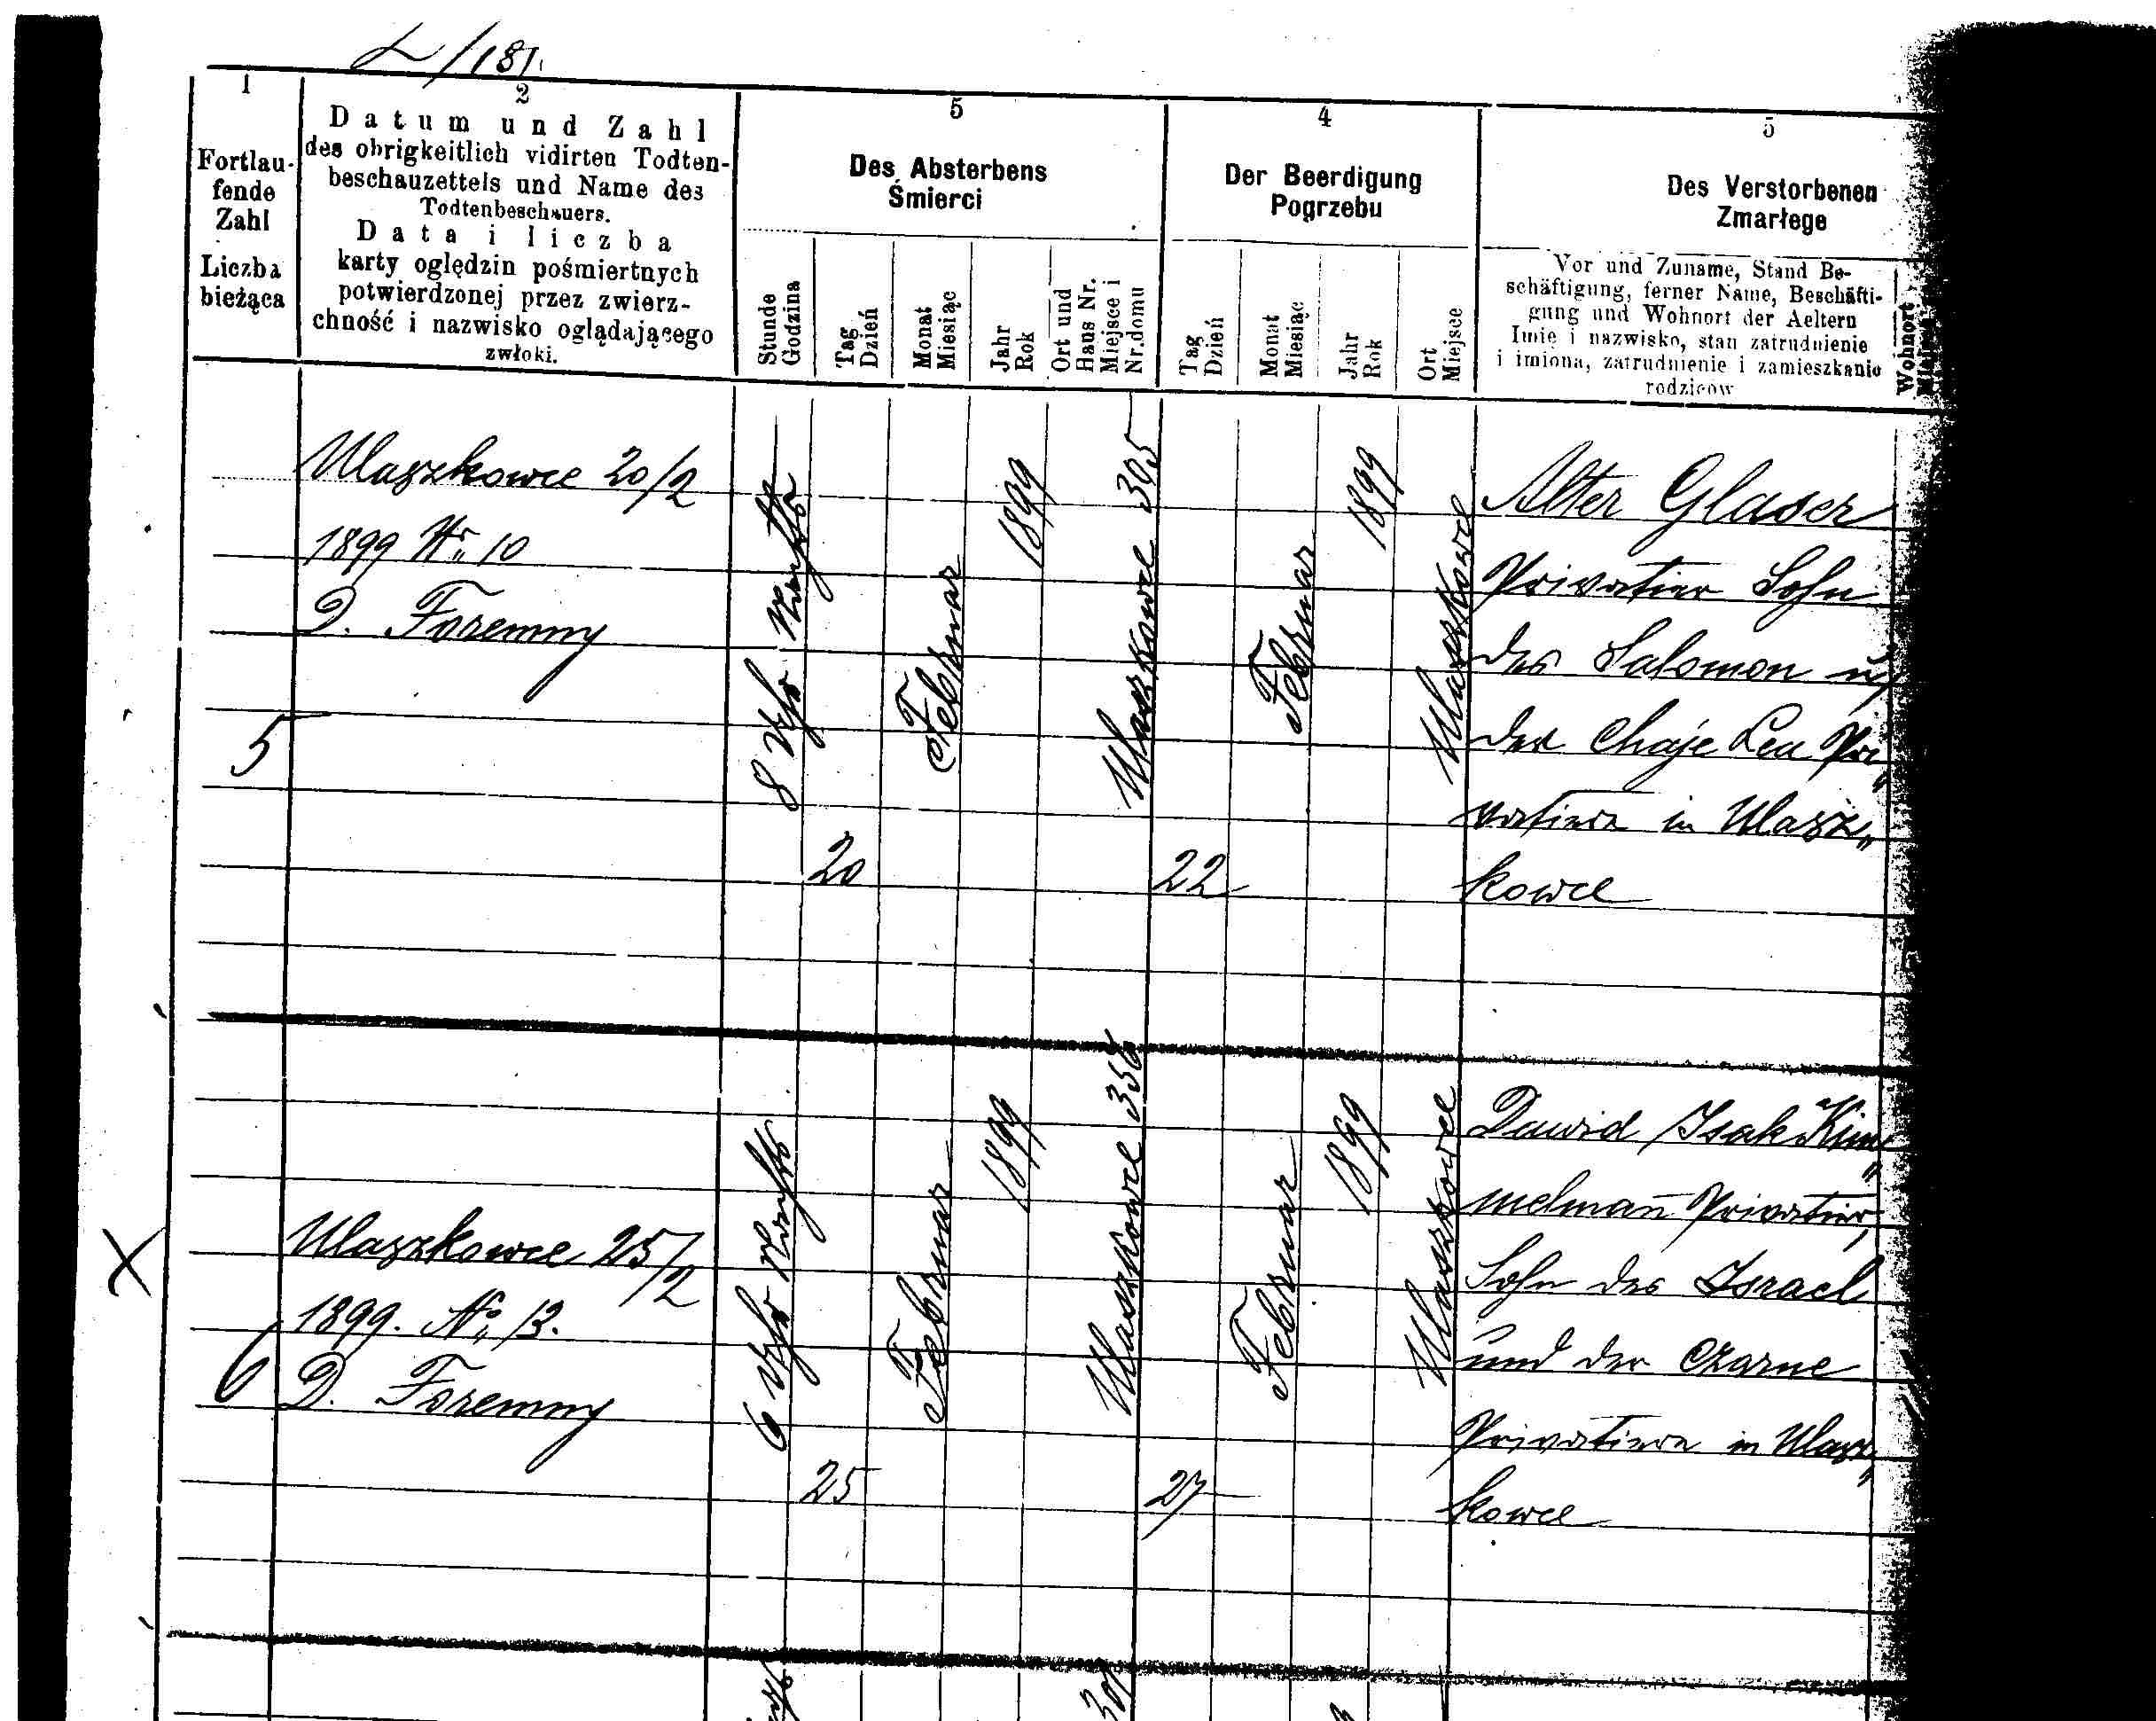 1
2
3
4
5
Fortlau-
fende
Zahl
Liczba
bieżąca
Datum und Zahl
des obrigkeitlich vidirten Todten-
beschauzettels und Name des
Todtenbeschauers.
Data i liczba
karty oględzin pośmiertnych
potwierdzonej przez zwierz-
chność i nazwisko oglądającego
zwłoki.
Des Absterbens
Śmierci
Stunde
Godzina
Tag
Dzień
Monat
Miesiąc
Jahr
Rok
Ort und
Haus Nr.
Miejsce i
Nr. domu
Der Beerdigung
Pogrzebu
Tag
Dzień
Monat
Miesiąc
Jahr
Rok
Ort
Miejsce
Des Verstorbenen
Zmarłege
Vor und Zuname, Stand Be-
schäftigung, ferner Name, Beschäfti-
gung und Wohnort der Aeltern
Imię i nazwisko, stan zatrudnienie
i imiona, zatrudnienie i zamieszkanie
rodziców
Wohnort
5
Ulaszkowce 20/2
1899 Nr. 10
D. Foremny
8 Uhr
20
Februar
1899
Ulaszkowce 305
22
Februar
1899
Ulaszkowce
Alter Glaser
Privatier Sohn
des Salomon u
der Chaje Lea Pri„
vatiere in Ulasz„
kowce
6
Ulaszkowce 25/2
1899. No. 13.
D. Foremny
6 Uhr
25
Februar
1899
Ulaszkowce 356
27
Februar
1899
Ulaszkowce
Dawid Isak Kim„
melman̄ Privatier,
Sohn des Israel
und der Czarne
Privatiere in Ulasz„
kowce